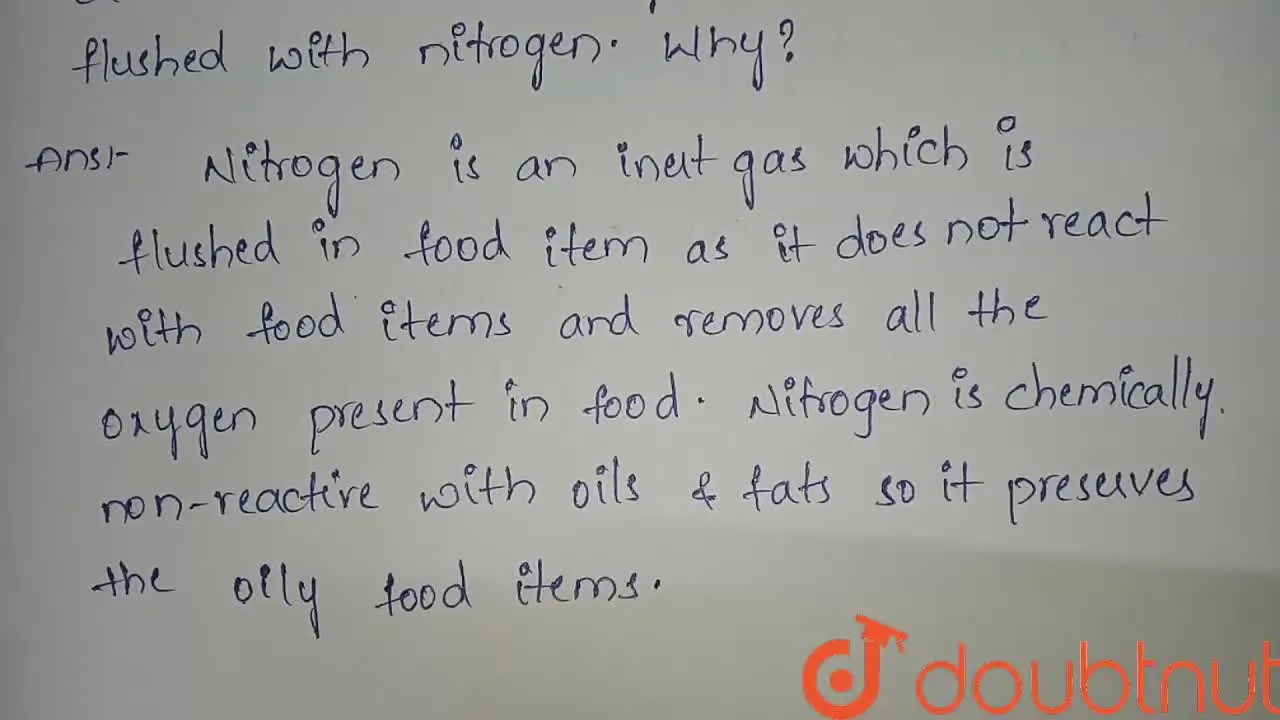 flushed with nitrogen. Why?
Ans:- Nitrogen is an inert gas which is
flushed in food item as it does not react
with food items and removes all the
oxygen present in food. Nitrogen is chemically
non-reactive with oils & fats so it preserves
the oily food items.
doubtnut